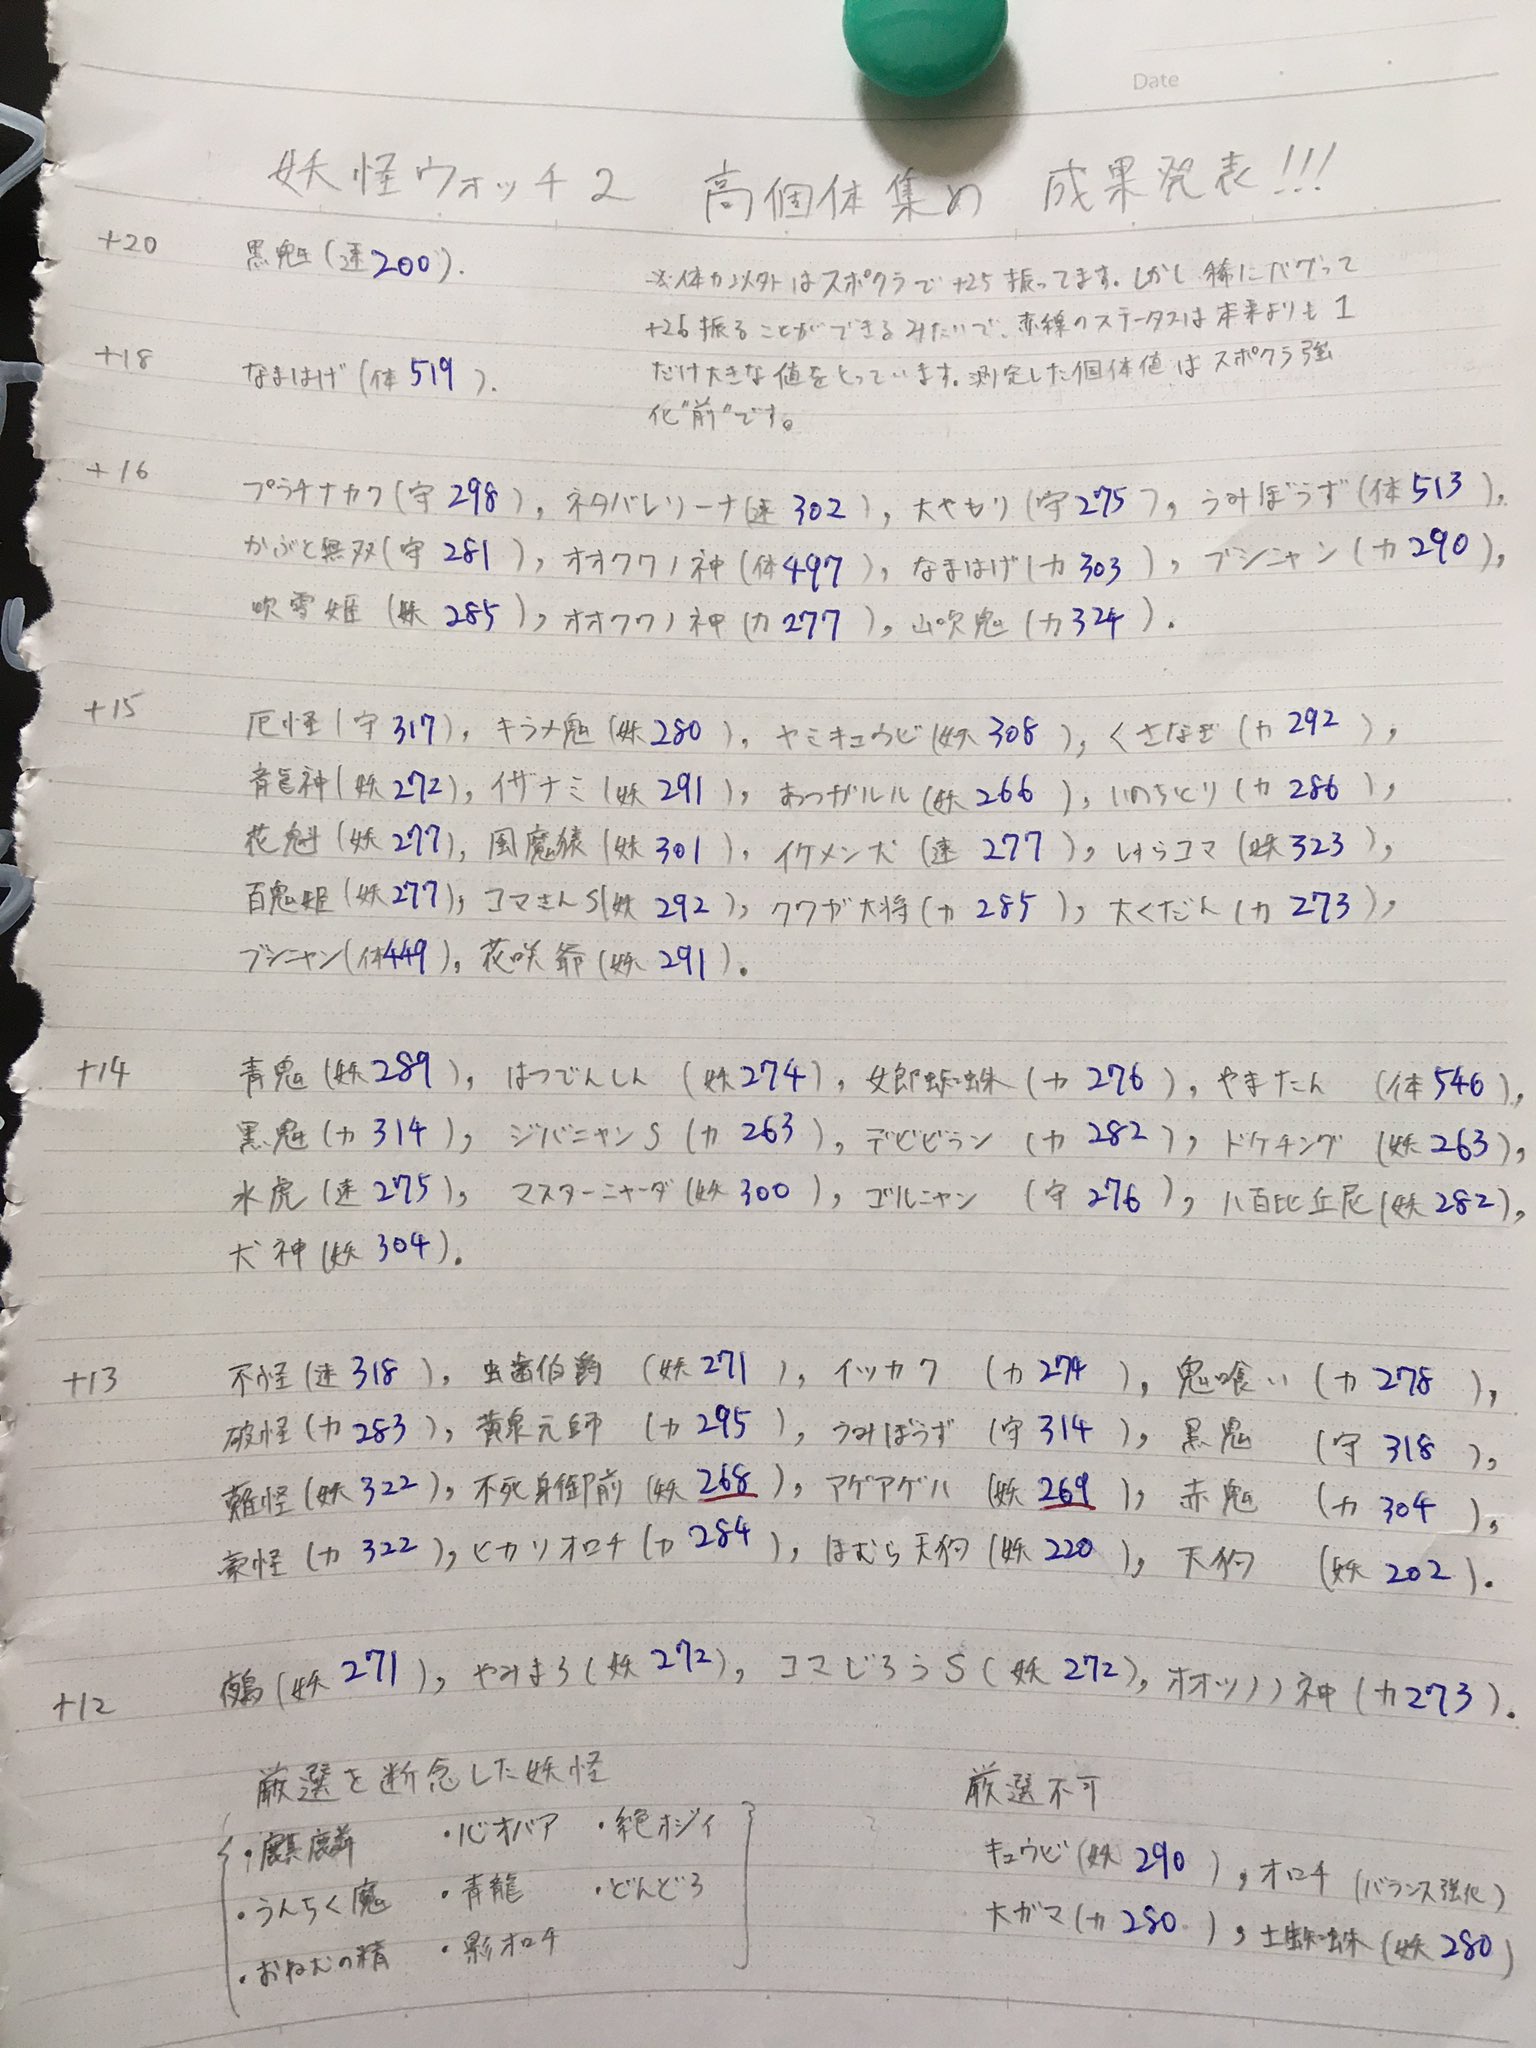 Date
妖怪ウォッチ2 高個体集め 成果発表!!!
+20 黒鬼(速200).
※体力以外はスポクラで+25振ってます。しかし稀にバグって
+26振ることができるみたいで、赤線のステータスは本来よりも1
だけ大きな値をとっています。測定した個体値はスポクラ強
化"前"です。
+18 なまはげ(体519).
+16 プラチナカク(守298), ネタバレリーナ(速302), 大やもり(守275), うみぼうず(体513),
かぶと無双(守281), オオクワノ神(体497), なまはげ(力303), ブシニャン(力290),
吹雪姫(妖285), オオクワノ神(力277), 山吹鬼(力324).
+15 厄怪(守317), キラメ鬼(妖280), ヤミキュウビ(妖308), くさなぎ(力292),
青龍神(妖272), イザナミ(妖291), あつガルル(妖266), いのちとり(力286),
花魁(妖277), 風魔猿(妖301), イケメン犬(速277), しゅらコマ(妖323),
百鬼姫(妖277), コマさんS(妖292), クワガ大将(力285), 大くだん(力273),
ブシニャン(体449), 花咲爺(妖291).
+14 青鬼(妖289), はつでんしん(妖274), 女郎蜘蛛(力276), やまたん(体546),
黒鬼(力314), ジバニャンS(力263), デビビラン(力282), ドケチング(妖263),
水虎(速275), マスターニャーダ(妖300), ゴルニャン(守276), 八百比丘尼(妖282),
犬神(妖304).
+13 不怪(速318), 虫歯伯爵(妖271), イッカク(力274), 鬼喰い(力278),
破怪(力283), 黄泉元帥(力295), うみぼうず(守314), 黒鬼(守318),
難怪(妖322), 不死身御前(妖268), アゲアゲハ(妖269), 赤鬼(力304),
豪怪(力322), ヒカリオロチ(力284), ほむら天狗(妖220), 天狗(妖202).
+12 鵺(妖271), やみまろ(妖272), コマじろうS(妖272), オオツノノ神(力273).
厳選を断念した妖怪
・麒麟 ・心オバア ・絶オジイ
・うんちく魔 ・青龍 ・どんどろ
・おねむの精 ・影オロチ
厳選不可
キュウビ(妖290), オロチ(バランス強化)
大ガマ(力280), 土蜘蛛(妖280)